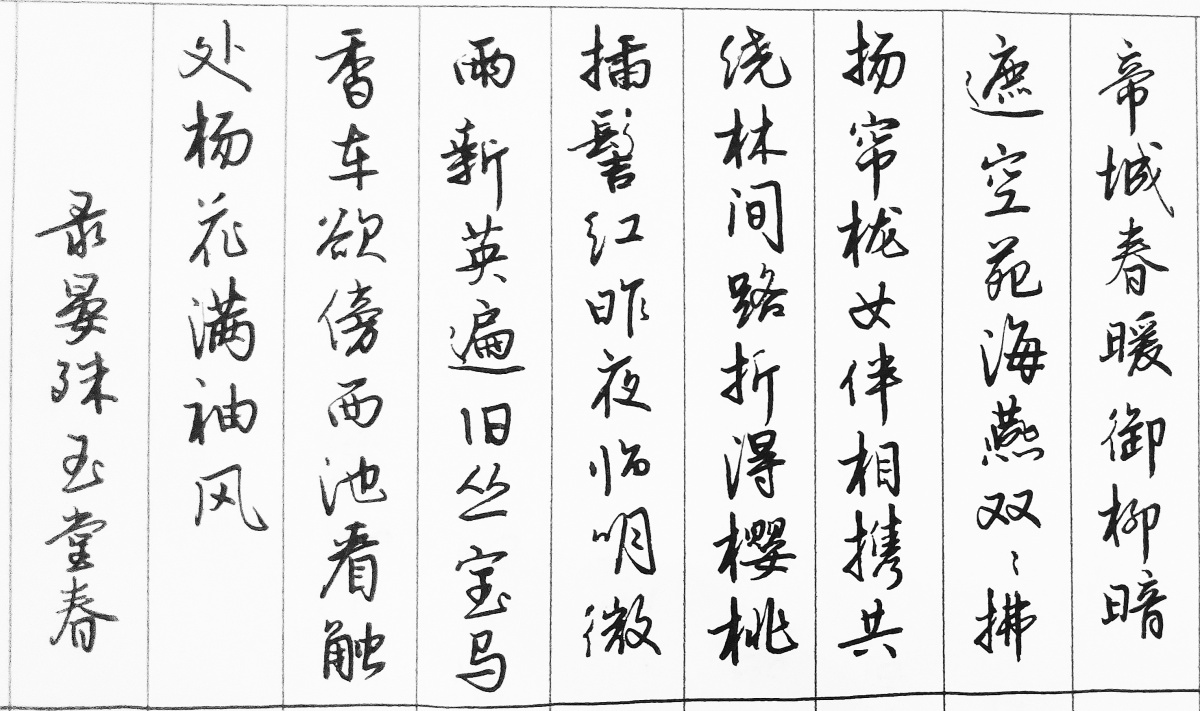 帝城春暖御柳暗
遮空苑海燕双〻拂
扬帘栊女伴相携共
绕林间路折得樱桃
插髻红昨夜临明微
雨新英遍旧丛宝马
香车欲傍西池看触
处杨花满袖风
录晏殊玉堂春